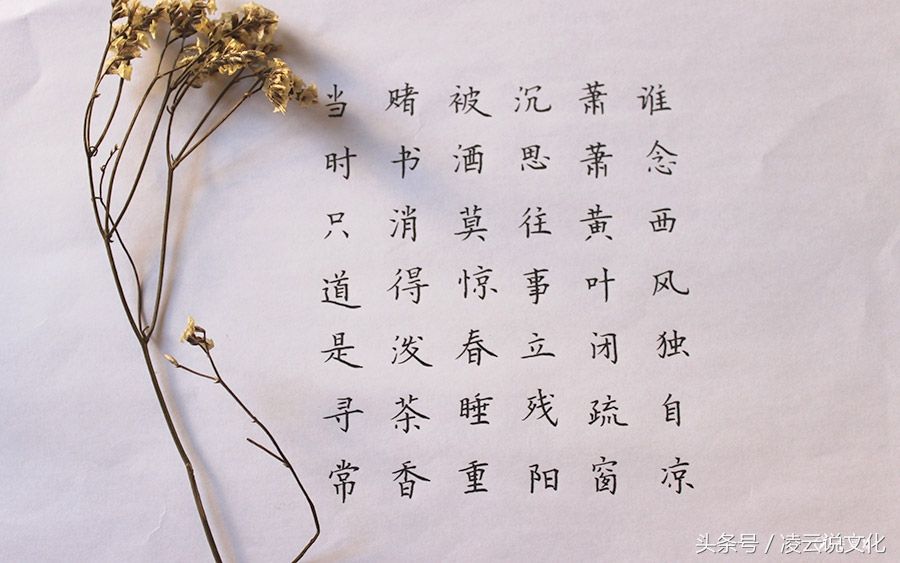 谁念西风独自凉
萧萧黄叶闭疏窗
沉思往事立残阳
被酒莫惊春睡重
赌书消得泼茶香
当时只道是寻常
头条号 / 凌云说文化